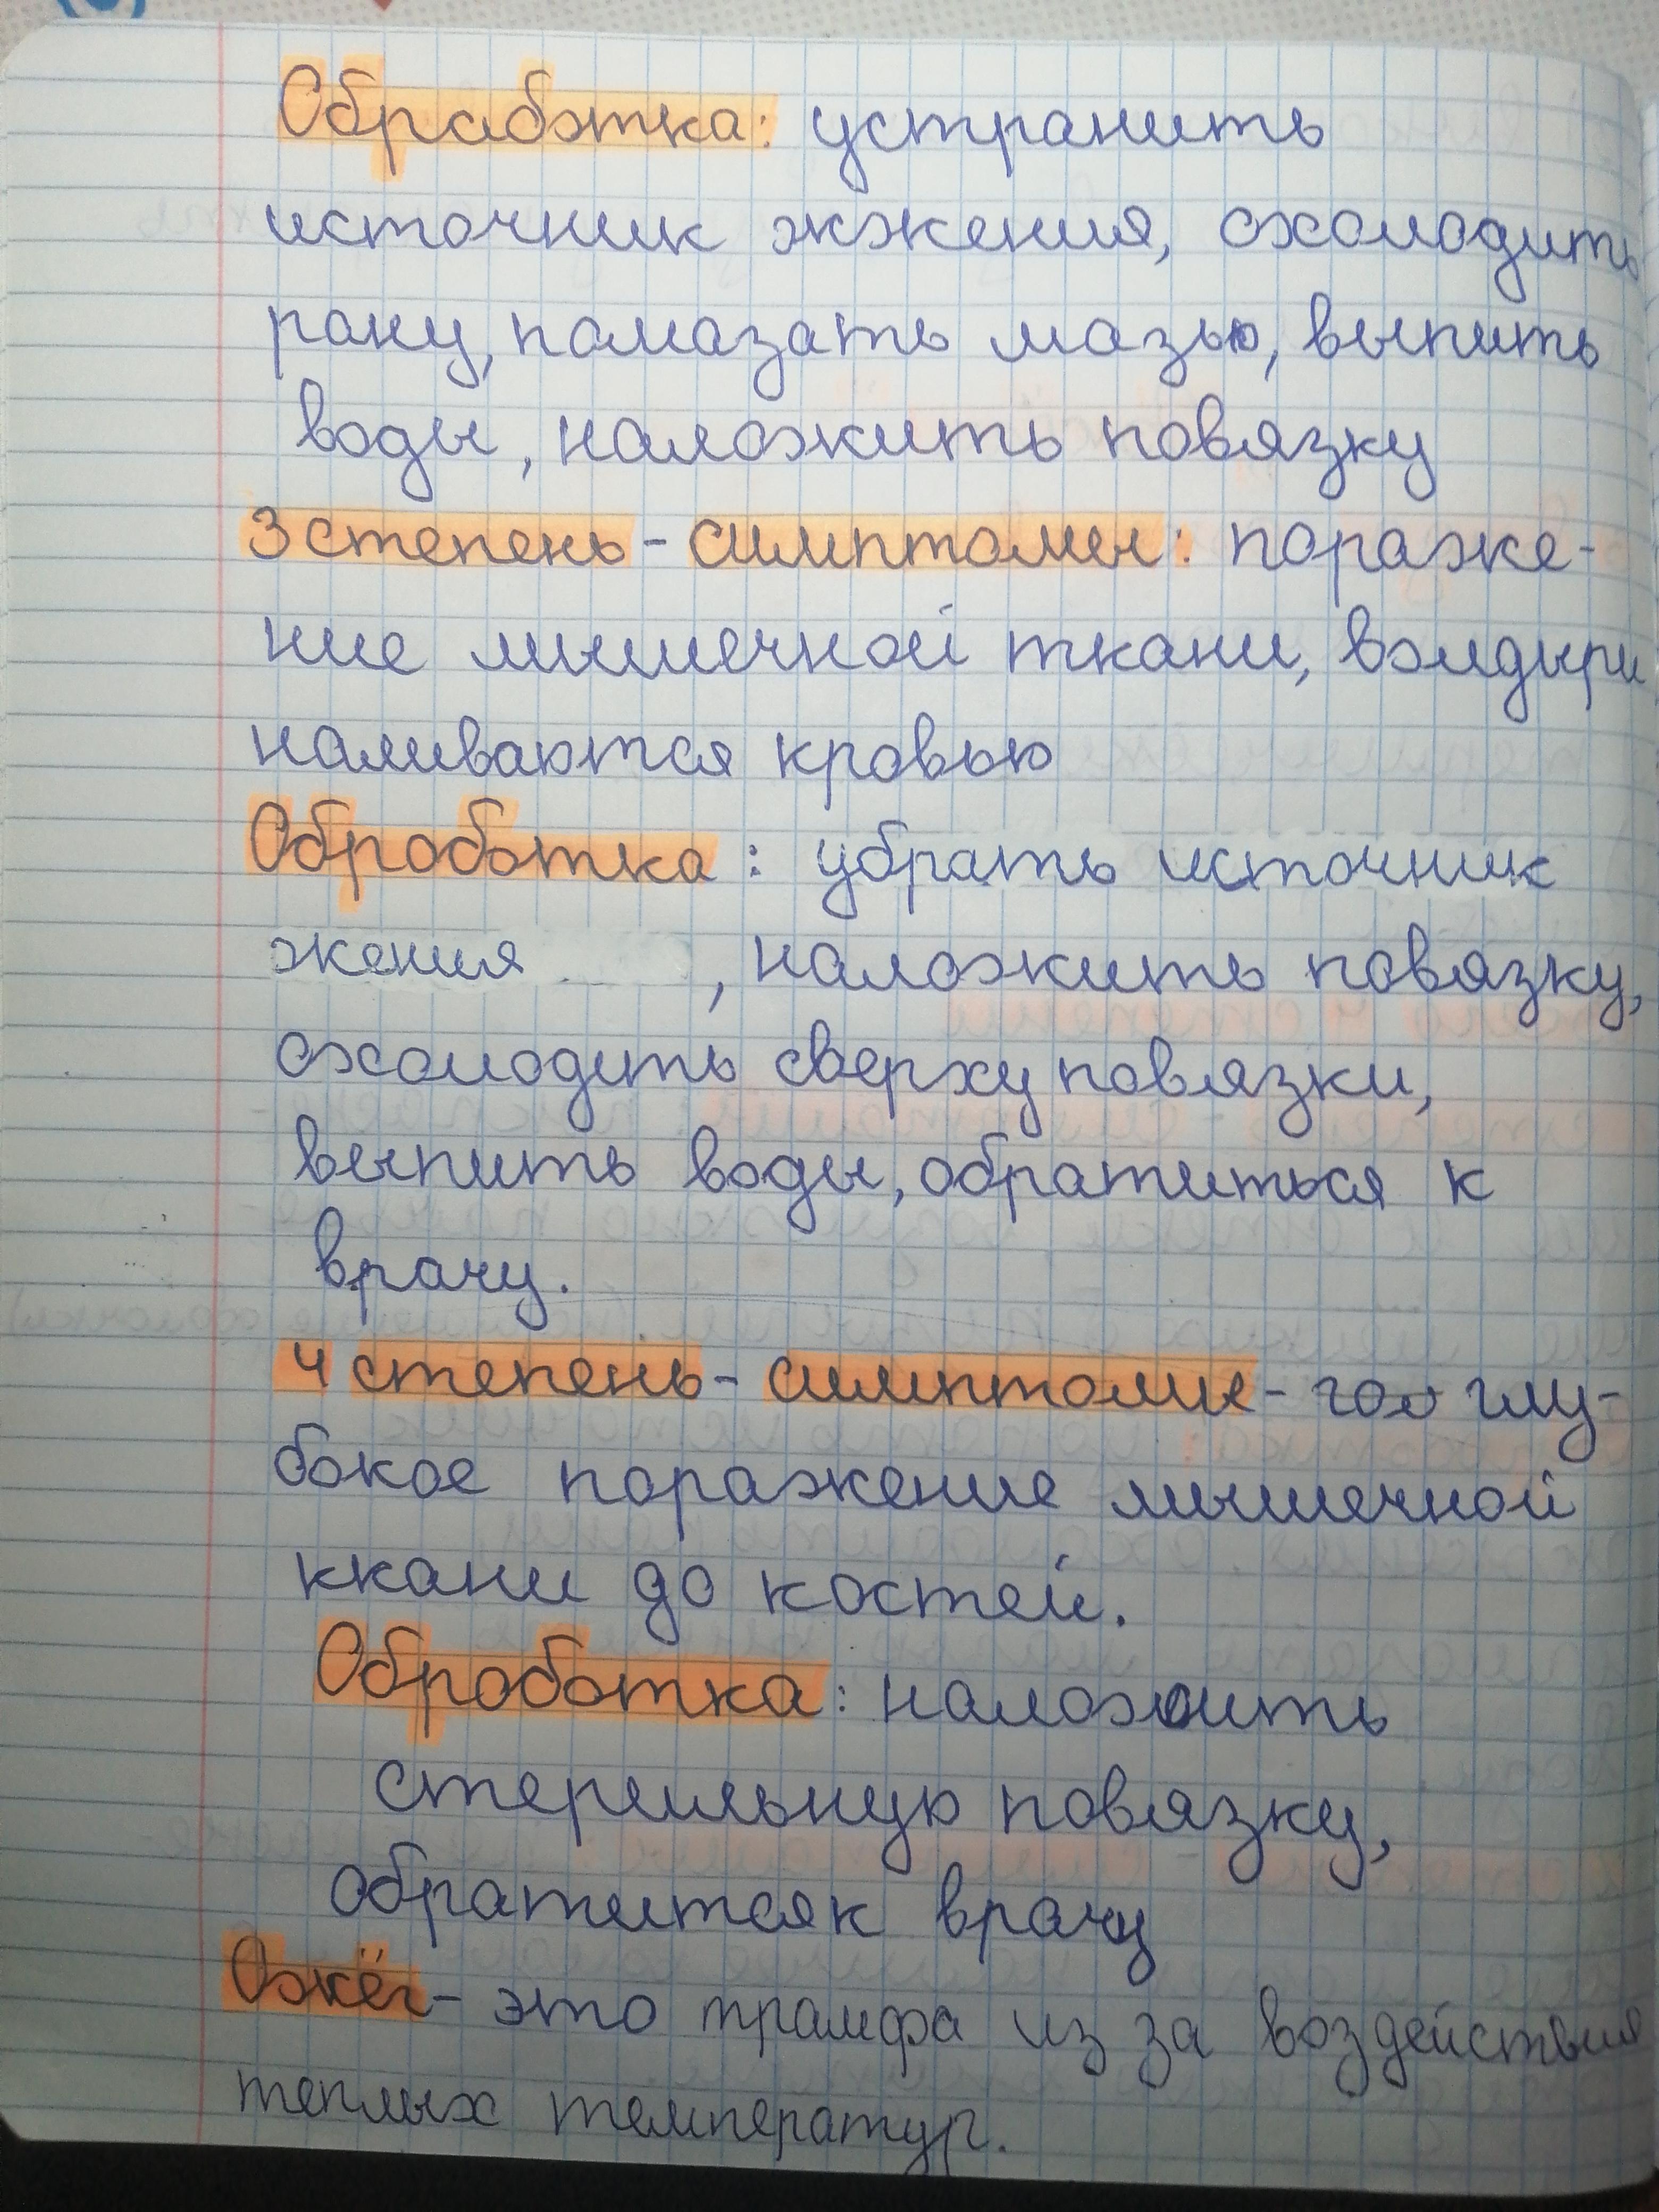 Обработка: устранить
источник жжения, охолодить
рану, помазать мазью, выпить
воды, наложить повязку
3 степень - симптомы: пораже-
ние мышечной ткани, волдыри
наливаются кровью
Оброботка: убрать источник
жжения, наложить повязку,
охолодить сверху повязки,
выпить воды, обратиться к
врачу.
4 степень - симптомы - глу-
бокое поражение мышечной
ккани до костей.
Оброботка: наложить
стерильную повязку,
обратитсяк врачу
Ожёг - это трамфа из за воздействия
теплых температур.